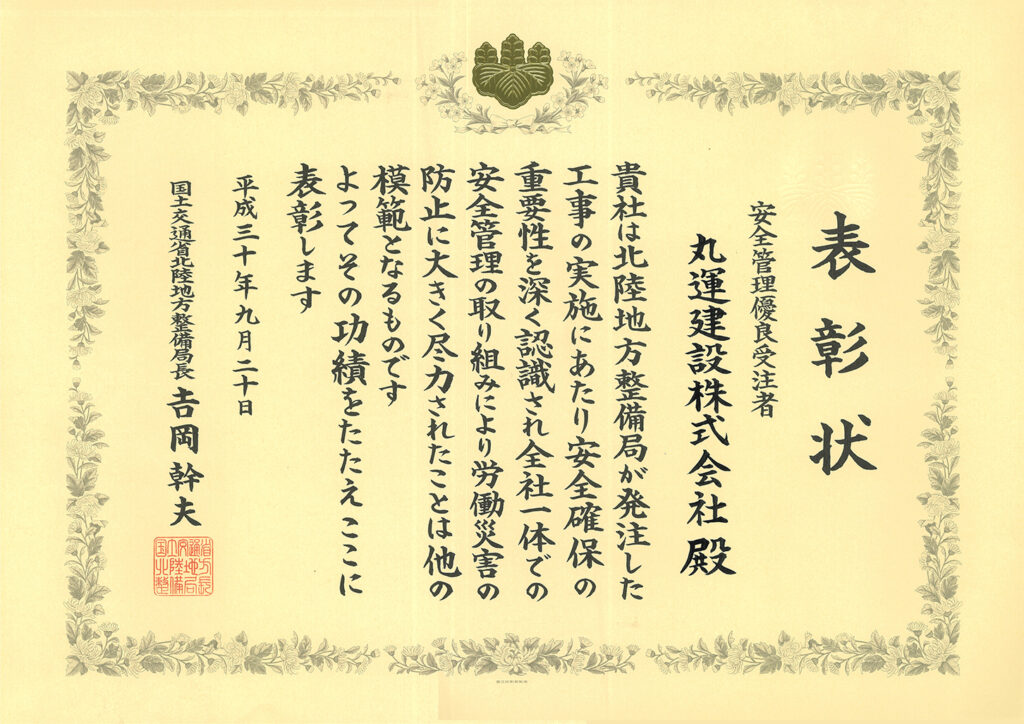 表彰状
安全管理優良受注者
丸運建設株式会社殿
貴社は北陸地方整備局が発注した
工事の実施にあたり安全確保の
重要性を深く認識され全社一体での
安全管理の取り組みにより労働災害の
防止に大きく尽力されたことは他の
模範となるものです
よってその功績をたたえここに
表彰します
平成三十年九月二十日
国土交通省北陸地方整備局長 吉岡幹夫